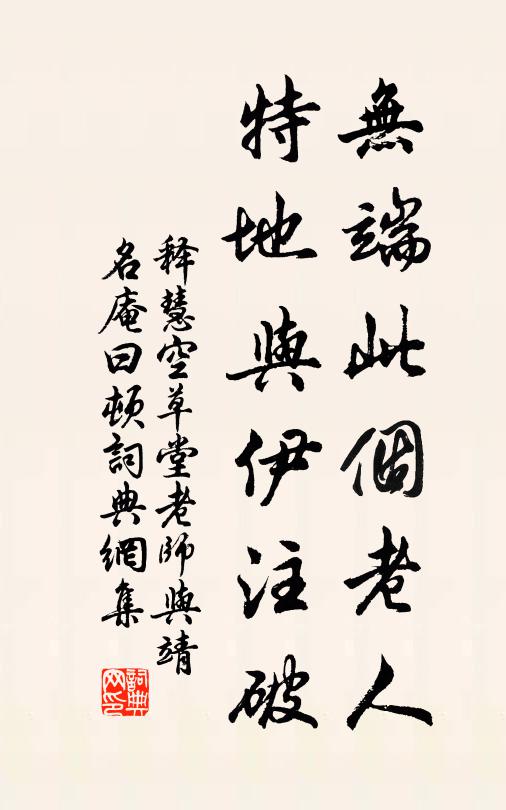 無端此個老人
特地與伊注破
释慧空草堂老师與靖
名庵曰頓詞典網集
詞典
网印